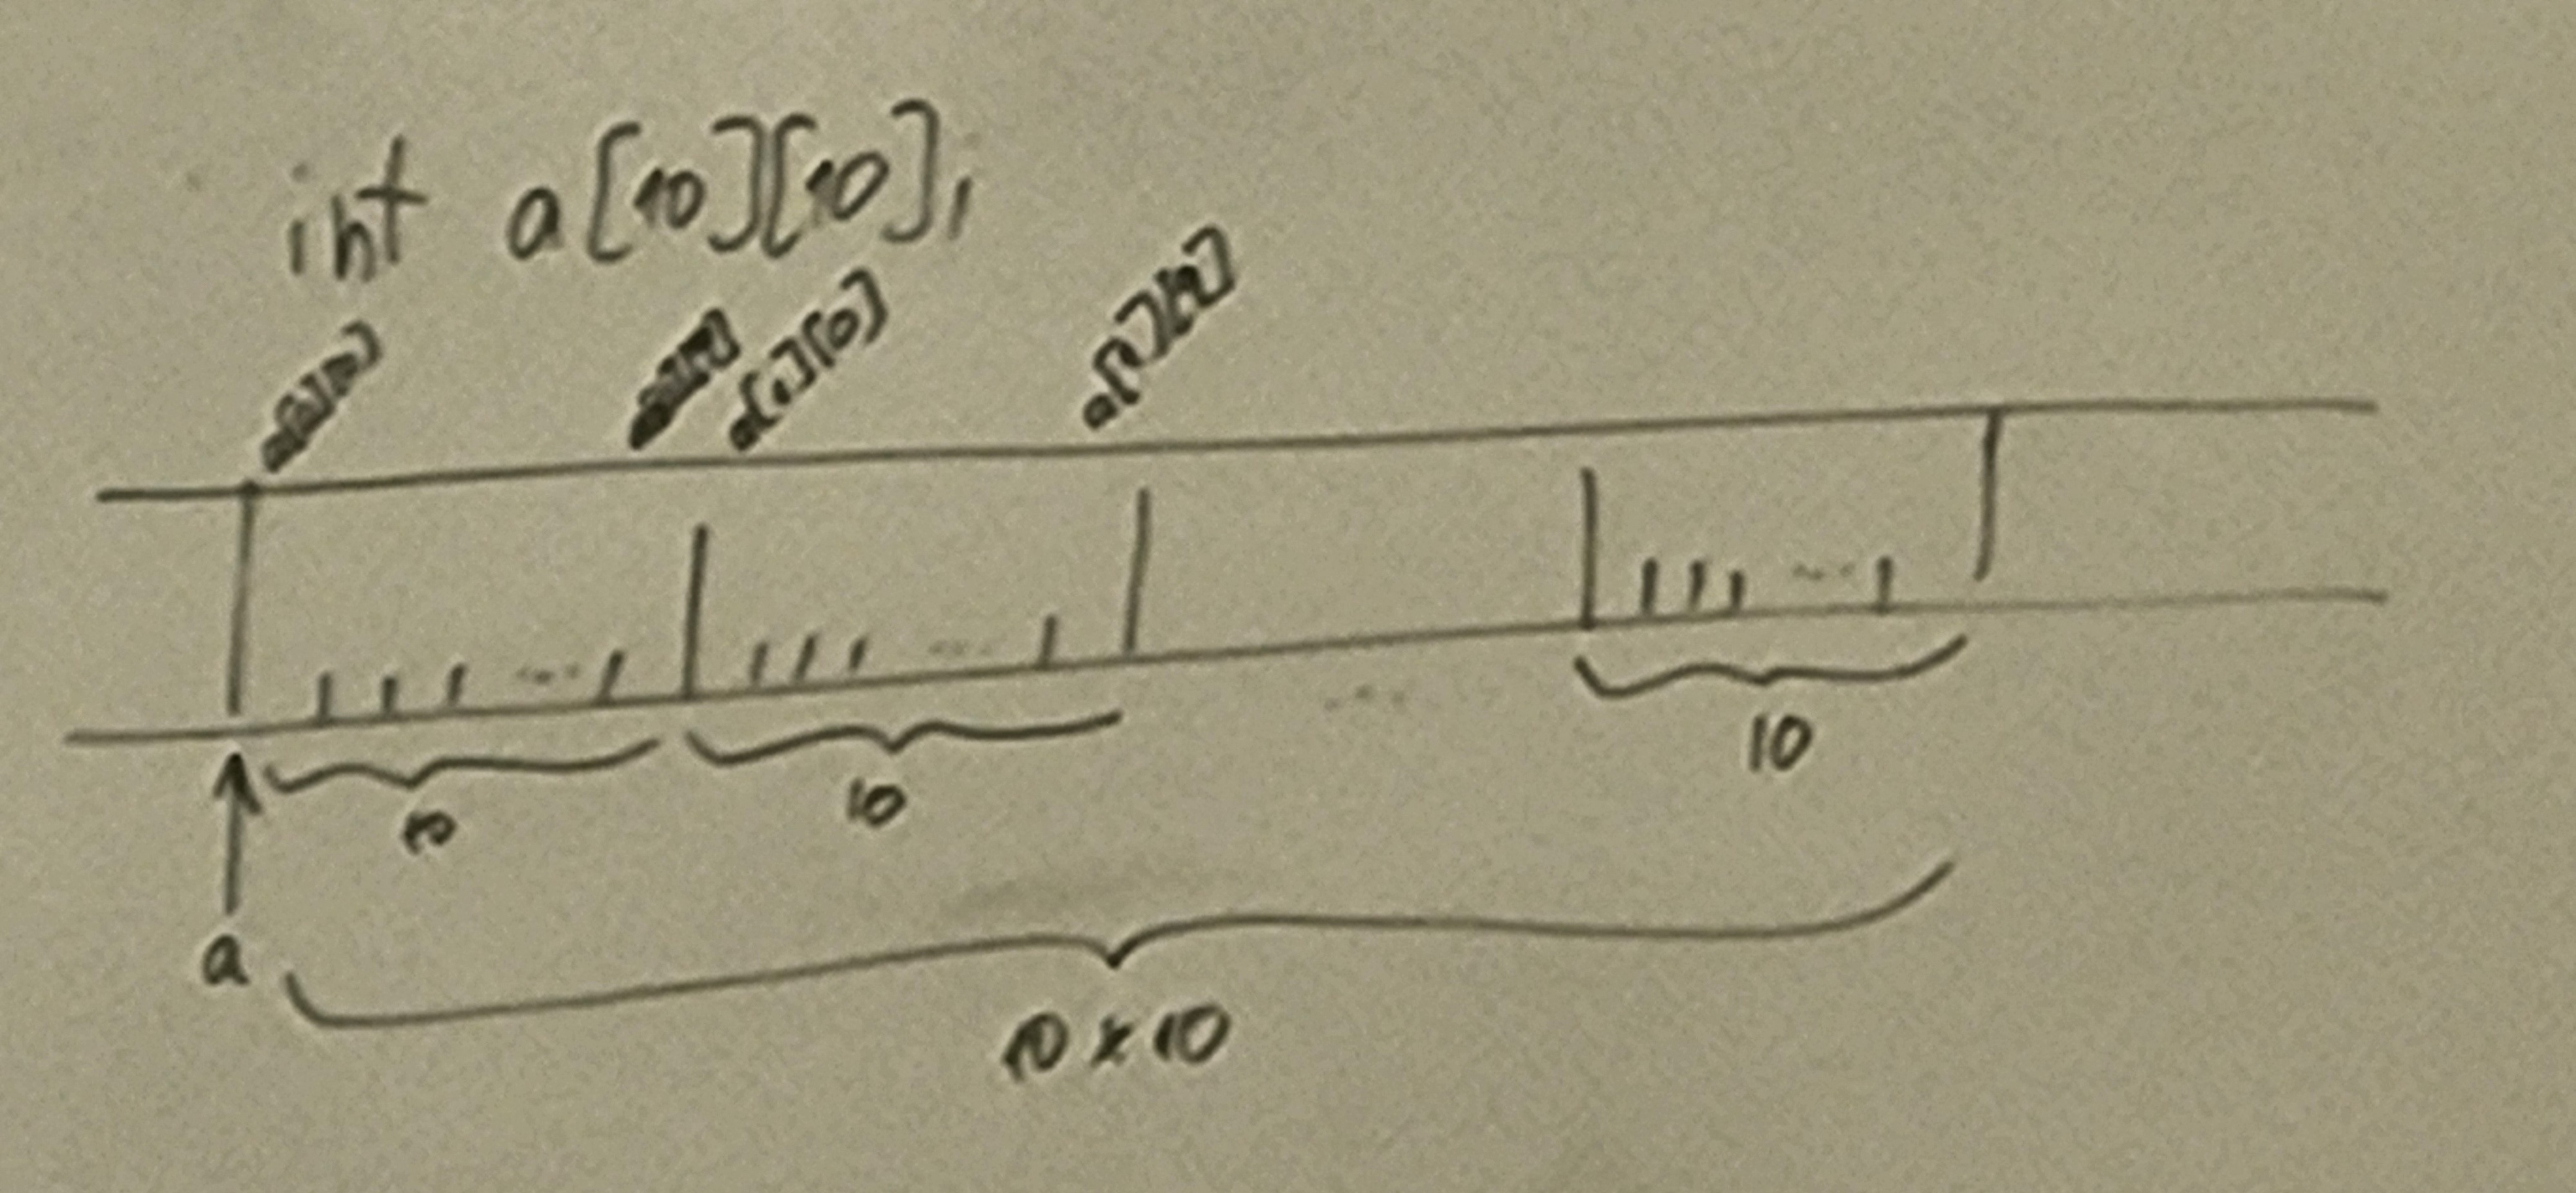 int a[10][10];
a[0][0]
a[1][0]
10
10
10
a
10 x 10